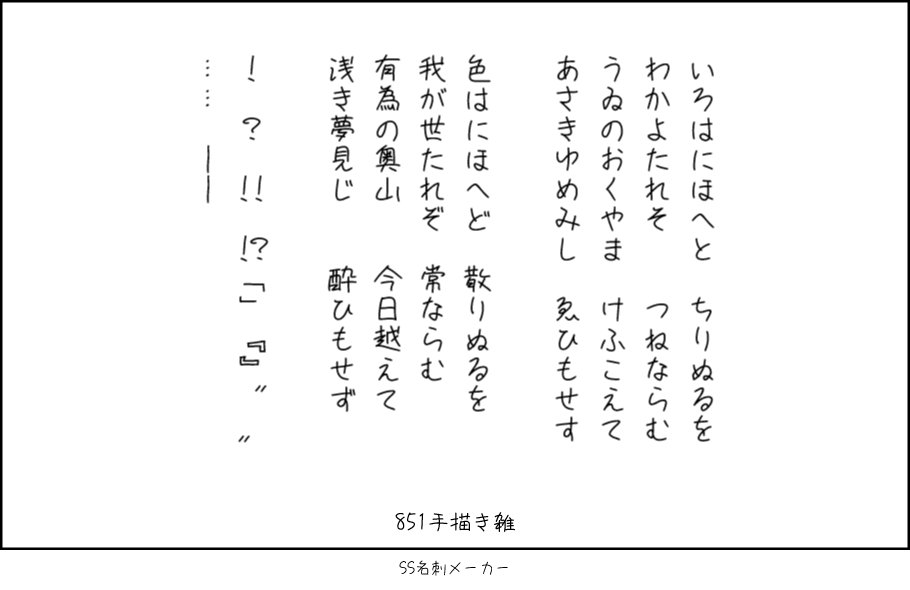 いろはにほへと　ちりぬるを
わかよたれそ　つねならむ
うゐのおくやま　けふこえて
あさきゆめみし　ゑひもせす
色はにほへど　散りぬるを
我が世たれぞ　常ならむ
有為の奥山　今日越えて
浅き夢見じ　酔ひもせず
！　？　!!　!?「」『』〝　〟
……　――
851手描き雑
SS名刺メーカー